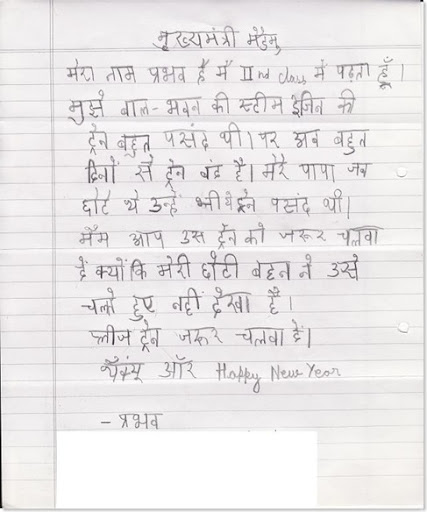 मुख्यमंत्री मैडम
मेरा नाम प्रभव है मैं IInd class में पढ़ता हूँ।
मुझे बाल-भवन की स्टीम इंजिन की
ट्रेन बहुत पसंद थी। पर अब बहुत
दिनों से ट्रेन बंद है। मेरे पापा जब
छोटे थे उन्हें भी ये ट्रेन पसंद थी।
मैम आप उस ट्रेन को जरूर चलवा
दें क्योंकि मेरी छोटी बहन ने उसे
चलते हुए नहीं देखा है।
प्लीज ट्रेन जरूर चलवा दें।
थैंक्यू और Happy New Year
- प्रभव